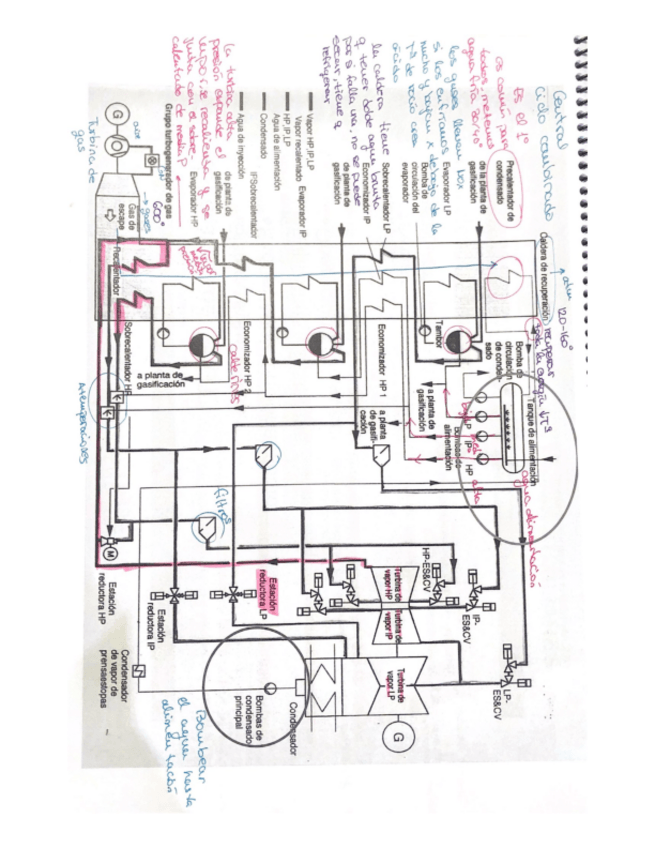 Central
Ciclo combinado
Es el 1º
es común para
todos, metemos
agua fría 30/40º
los gases llevan
si los enfriamos
mucho y bajan x debajo de la
Tª de rocío crea
ácido
la caldera tiene
q tener doble
por si falla una, no se puede
secar, tiene q
refrigerar
la turbina alta
presión expande el
vapor, se recalienta y se
junta con el sobre
calentado de media P
Precalentador de
condensado
de la planta de
gasificación
Evaporador LP
Bomba de
circulación del
evaporador
Sobrecalentador LP
Economizador IP
de planta de
gasificación
Vapor HP, IP, LP
Vapor recalentado
HP, IP, LP
Agua de alimentación
Condensado
Agua de inyección
Evaporador IP
IP/Sobrecalentador
de planta de
gasificación
Evaporador HP
Grupo turbogenerador de gas
G
aire
Turbina de
gas
gases
600º
Gas de
escape
Caldera de recuperación
120-160º
recuperar
Bomba de
circulación
de conden-
sado
Tanque de alimentación
agua alimentación
Tambor
a planta de
gasificación
Bombas de
alimentación
LP
IP
HP
baja
alta
Economizador HP 1
a planta
de gasifi-
cación
Economizador HP 2
calderines
a planta de
gasificación
Vapor
media
presión
Recalentador
Sobrecalentador HP
Atemperadores
filtros
HP-ES&CV
IP-
ES&CV
LP-
ES&CV
Turbina de
vapor HP
Turbina de
vapor IP
Turbina de
vapor LP
G
Estación
reductora LP
Estación
reductora IP
M
Estación
reductora HP
Condensador
Bombas de
condensado
principal
Condensador
de vapor de
prensaestopas
Bombear
el agua hasta
alimentación